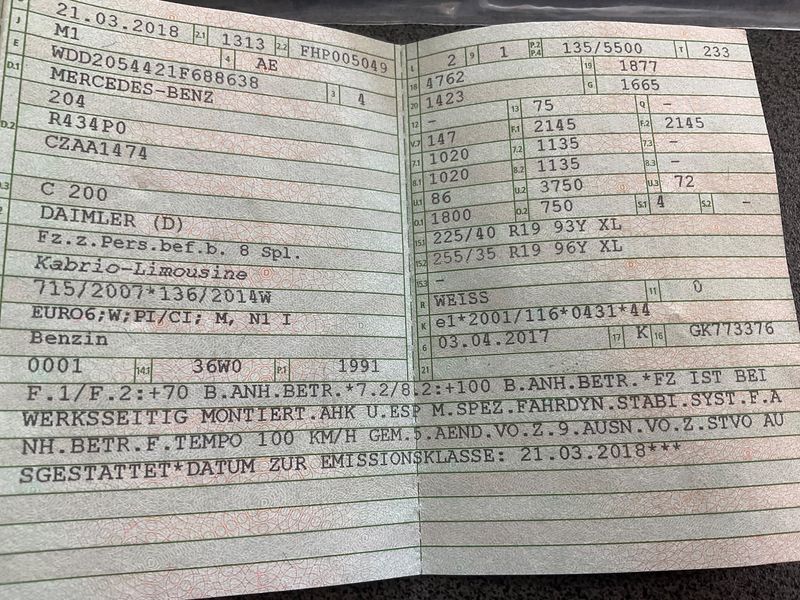 J 21.03.2018 2.1 1313 2.2 FHP005049
E M1 4 AE
D.1 WDD2054421F688638 3 4
MERCEDES-BENZ
204
D.2 R434P0
CZAA1474
D.3 C 200
2 DAIMLER (D)
Fz.z.Pers.bef.b. 8 Spl.
Kabrio-Limousine
715/2007*136/2014W
EURO6;W;PI/CI; M, N1 I
Benzin
0001 14.1 36W0 P.1 1991
L 2 9 1 P.2 P.4 135/5500 T 233
18 4762 19 1877
20 1423 G 1665
12 - 13 75 Q -
V.7 147 F.1 2145 F.2 2145
7.1 1020 7.2 1135 7.3 -
8.1 1020 8.2 1135 8.3 -
U.1 86 U.2 3750 U.3 72
O.1 1800 O.2 750 S.1 4 S.2 -
15.1 225/40 R19 93Y XL
15.2 255/35 R19 96Y XL
15.3 -
R WEISS 11 0
K e1*2001/116*0431*44
6 03.04.2017 17 K 16 GK773376
21
F.1/F.2:+70 B.ANH.BETR.*7.2/8.2:+100 B.ANH.BETR.*FZ IST BEI
WERKSSEITIG MONTIERT.AHK U.ESP M.SPEZ.FAHRDYN.STABI.SYST.F.A
NH.BETR.F.TEMPO 100 KM/H GEM.5.AEND.VO.Z.9.AUSN.VO.Z.STVO AU
SGESTATTET*DATUM ZUR EMISSIONSKLASSE: 21.03.2018***